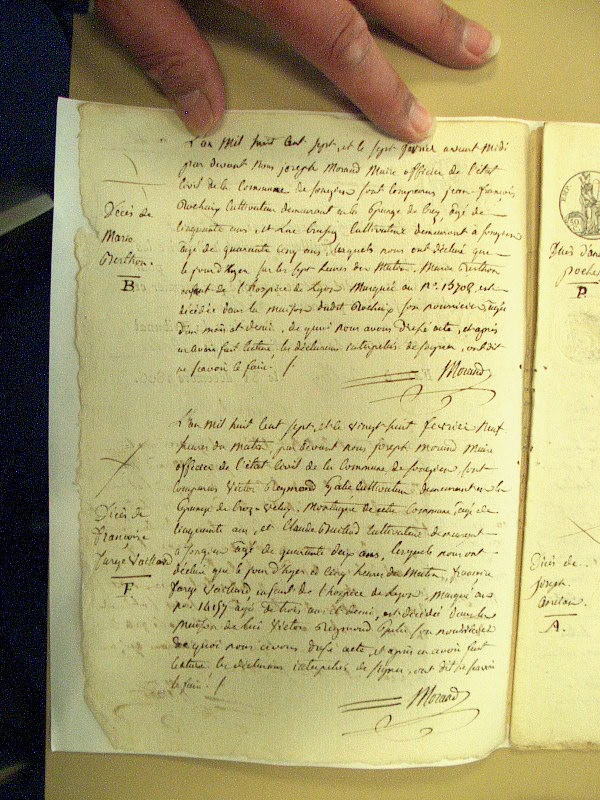 L'an mil huit cent sept, et le sept février avant midi
par devant nous joseph Morand Maire officier de l'état
Civil de la Commune de songieu sont comparus jean françois
Cultivateur demeurant en la Grange de âgé de
Cinquante ans, et Luc Cultivateur demeurant à songieu
âgé de quarante cinq ans, lesquels nous ont déclaré que
le jour d'hyer sur les sept heures du Matin, Marie Berthon
enfant de l'hospice de Lyon Marquée au No. 15708, est
décédée dans la maison dudit son nourricier, âgée
d'un mois et demi, de quoi nous avons dressé acte, et après
en avoir fait lecture, les déclarans interpellés de signer, ont dit
ne scavoir le faire. /.
Morand
Décès de
Marie
Berthon.
B.
L'an mil huit cent sept, et le vingt huit février neuf
heures du matin, par devant nous joseph Morand Maire
officier de l'état Civil de la Commune de songieu, sont
comparus Victor Reymond Cultivateur demeurant en la
Grange de Montagne de cette Commune, âgé de
cinquante ans, et Claude Cultivateur demeurant
à songieu âgé de quarante deux ans, lesquels nous ont
déclaré que le jour d'hyer à Cinq heures du Matin, françoise
Vaillard, enfant de l'hospice de Lyon, Marquée au
no. 14157 âgé de trois ans et demi, est décédée dans la
Maison de lui Victor Reymond son nourricier
de quoi nous avons dressé acte, et après en avoir fait
lecture les déclarans interpellés de signer, ont dit ne scavoir
le faire. /.
Morand
Décès de
françoise
Vaillard
F.
Décès d'
poches
P.
Décès de
joseph
A.